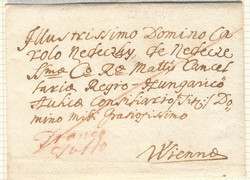 Illustrissimo Domino Ca
rolo Nedeczky, de Nedecze
Suae Matt: Cancel
lariae Regio Hungarico
Aulicae Consiliario Do-
mino mihi Gratiosissimo
Franco
Wiennae